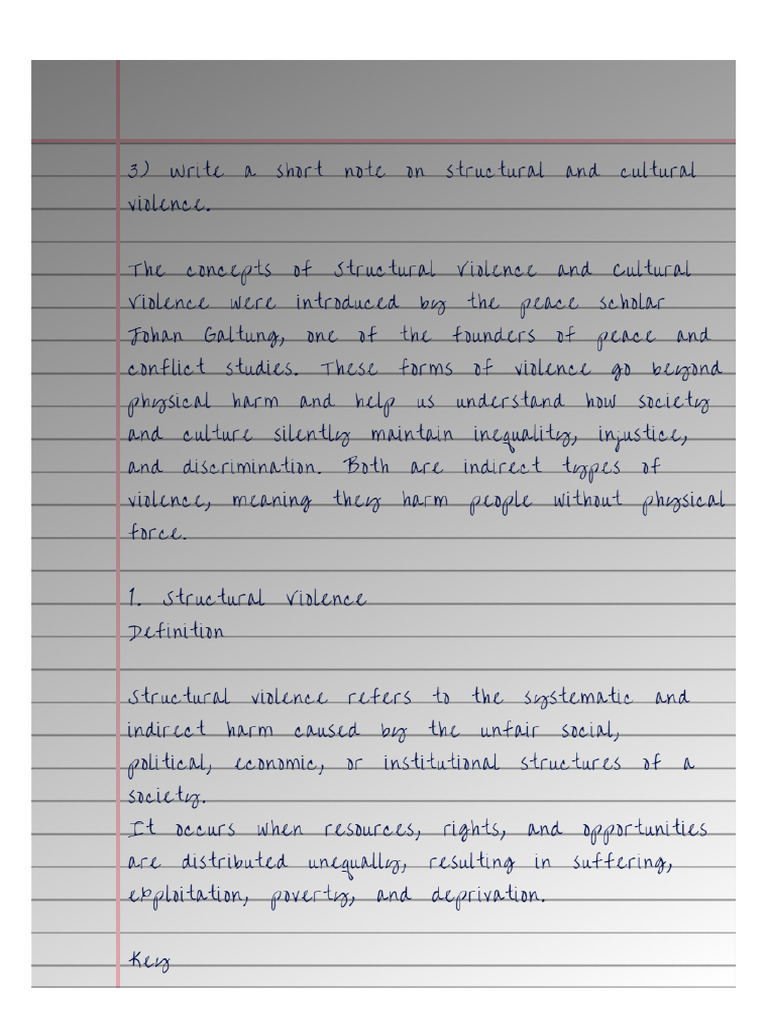 3) Write a short note on structural and cultural
violence.
The concepts of Structural Violence and Cultural
Violence were introduced by the peace scholar
Johan Galtung, one of the founders of peace and
conflict studies. These forms of violence go beyond
physical harm and help us understand how society
and culture silently maintain inequality, injustice,
and discrimination. Both are indirect types of
violence, meaning they harm people without physical
force.
1. Structural Violence
Definition
Structural violence refers to the systematic and
indirect harm caused by the unfair social,
political, economic, or institutional structures of a
society.
It occurs when resources, rights, and opportunities
are distributed unequally, resulting in suffering,
exploitation, poverty, and deprivation.
Key